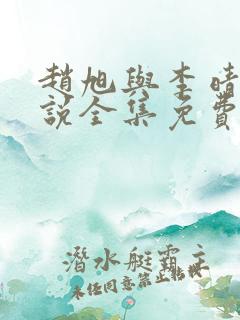 趙旭與李晴
說全集免費
潛水艇霸主
未經同意禁止轉載